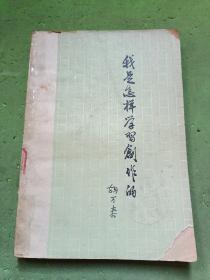 我是怎样学習創作的
胡万春